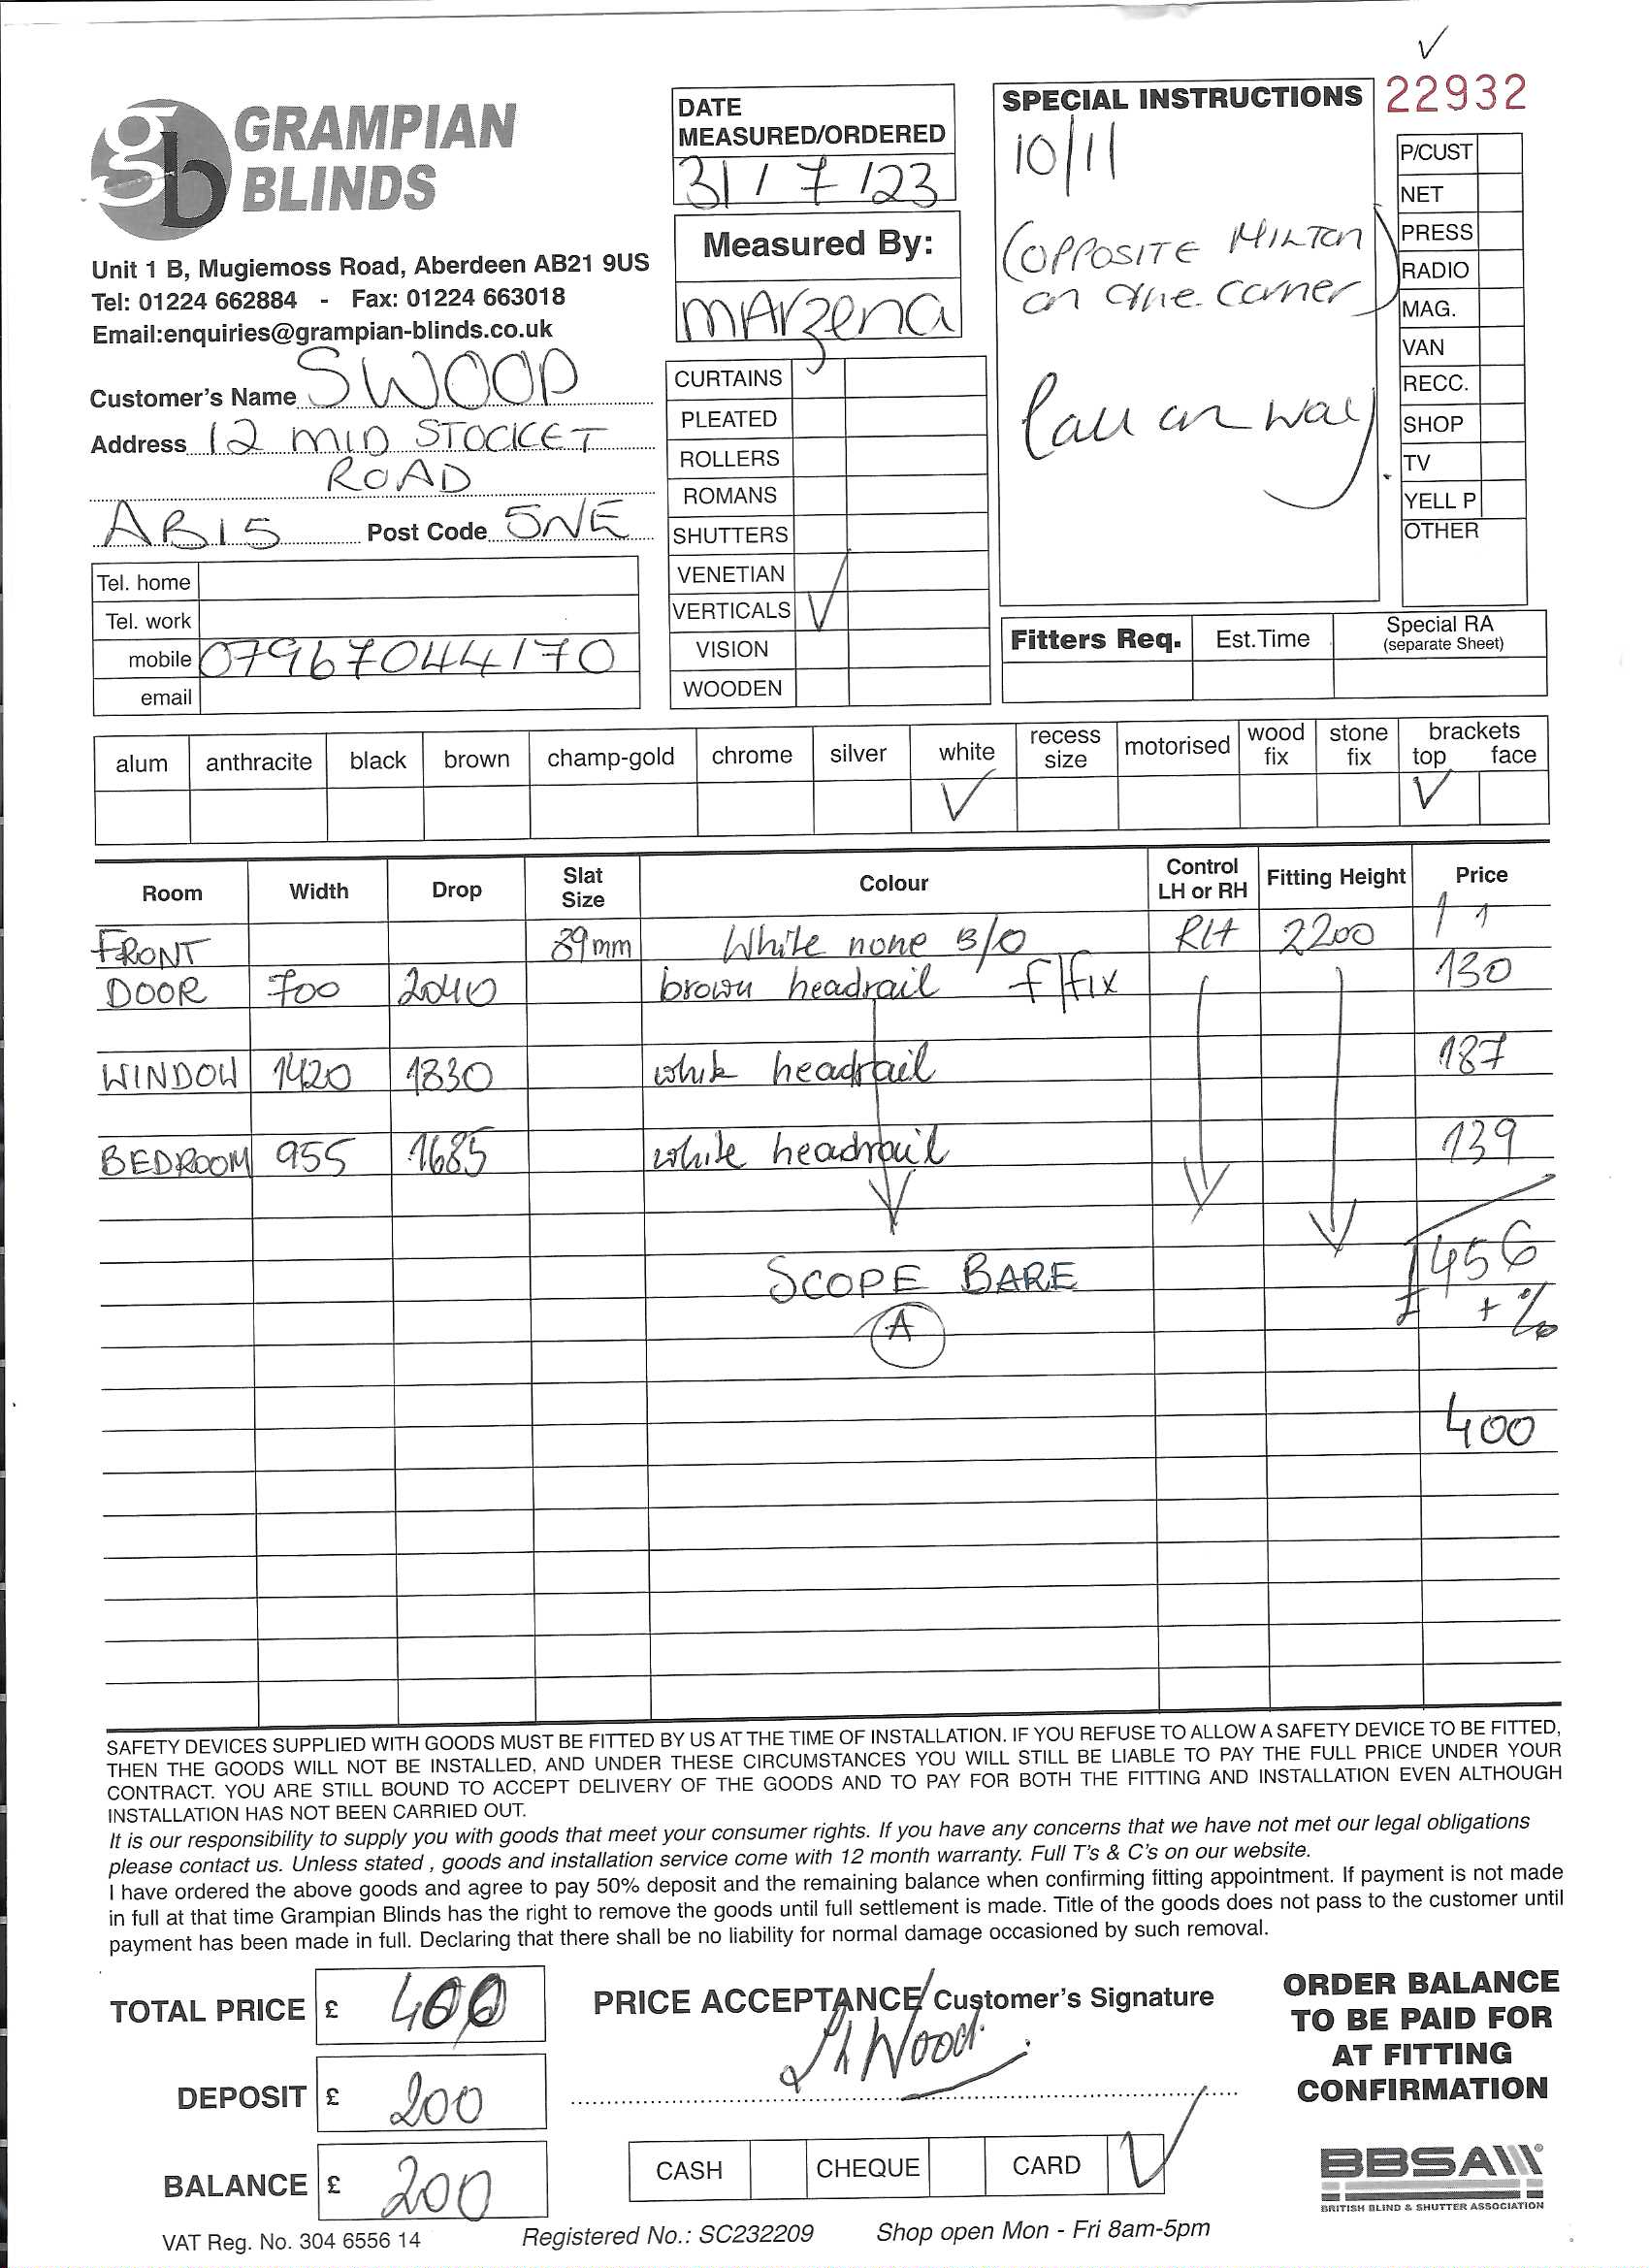 22932
GRAMPIAN
BLINDS
Unit 1 B, Mugiemoss Road, Aberdeen AB21 9US
Tel: 01224 662884 - Fax: 01224 663018
Email:enquiries@grampian-blinds.co.uk
Customer's Name SWOOD
Address 12 MID STOCKET
ROAD
AB15 Post Code 5NE
Tel. home
Tel. work
mobile 07967044170
email
DATE
MEASURED/ORDERED
31 / 7 / 23
Measured By:
MARzena
CURTAINS
PLEATED
ROLLERS
ROMANS
SHUTTERS
VENETIAN
VERTICALS ✓
VISION
WOODEN
SPECIAL INSTRUCTIONS
10/11
(OPPOSITE MILTON
on the corner)
Call on way
P/CUST
NET
PRESS
RADIO
MAG.
VAN
RECC.
SHOP
TV
YELL P
OTHER
Fitters Req. Est.Time Special RA
(separate Sheet)
alum anthracite black brown champ-gold chrome silver white recess size motorised wood fix stone fix brackets top face
✓ ✓
Room Width Drop Slat Size Colour Control LH or RH Fitting Height Price
FRONT 89mm White none B/O RH 2200
DOOR 700 2040 brown headrail f/fix 130
WINDOW 1420 1830 white headrail 187
BEDROOM 955 1685 white headrail 139
£456
SCOPE BARE
+ %
A
400
SAFETY DEVICES SUPPLIED WITH GOODS MUST BE FITTED BY US AT THE TIME OF INSTALLATION. IF YOU REFUSE TO ALLOW A SAFETY DEVICE TO BE FITTED,
THEN THE GOODS WILL NOT BE INSTALLED, AND UNDER THESE CIRCUMSTANCES YOU WILL STILL BE LIABLE TO PAY THE FULL PRICE UNDER YOUR
CONTRACT. YOU ARE STILL BOUND TO ACCEPT DELIVERY OF THE GOODS AND TO PAY FOR BOTH THE FITTING AND INSTALLATION EVEN ALTHOUGH
INSTALLATION HAS NOT BEEN CARRIED OUT.
It is our responsibility to supply you with goods that meet your consumer rights. If you have any concerns that we have not met our legal obligations
please contact us. Unless stated , goods and installation service come with 12 month warranty. Full T's & C's on our website.
I have ordered the above goods and agree to pay 50% deposit and the remaining balance when confirming fitting appointment. If payment is not made
in full at that time Grampian Blinds has the right to remove the goods until full settlement is made. Title of the goods does not pass to the customer until
payment has been made in full. Declaring that there shall be no liability for normal damage occasioned by such removal.
TOTAL PRICE £ 400
DEPOSIT £ 200
BALANCE £ 200
PRICE ACCEPTANCE/Customer's Signature
Wood
CASH CHEQUE CARD ✓
ORDER BALANCE
TO BE PAID FOR
AT FITTING
CONFIRMATION
BBSA
BRITISH BLIND & SHUTTER ASSOCIATION
VAT Reg. No. 304 6556 14 Registered No.: SC232209 Shop open Mon - Fri 8am-5pm